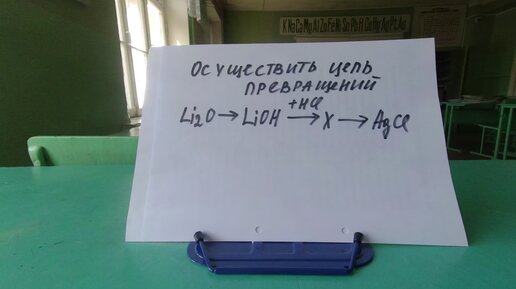 K Na Ca Mg Al Zn Fe Ni Sn Pb H Cu Hg Ag Pt Au
ОСУЩЕСТВИТЬ ЦЕПЬ
ПРЕВРАЩЕНИЙ
Li₂O → LiOH +HCl → X → AgCl